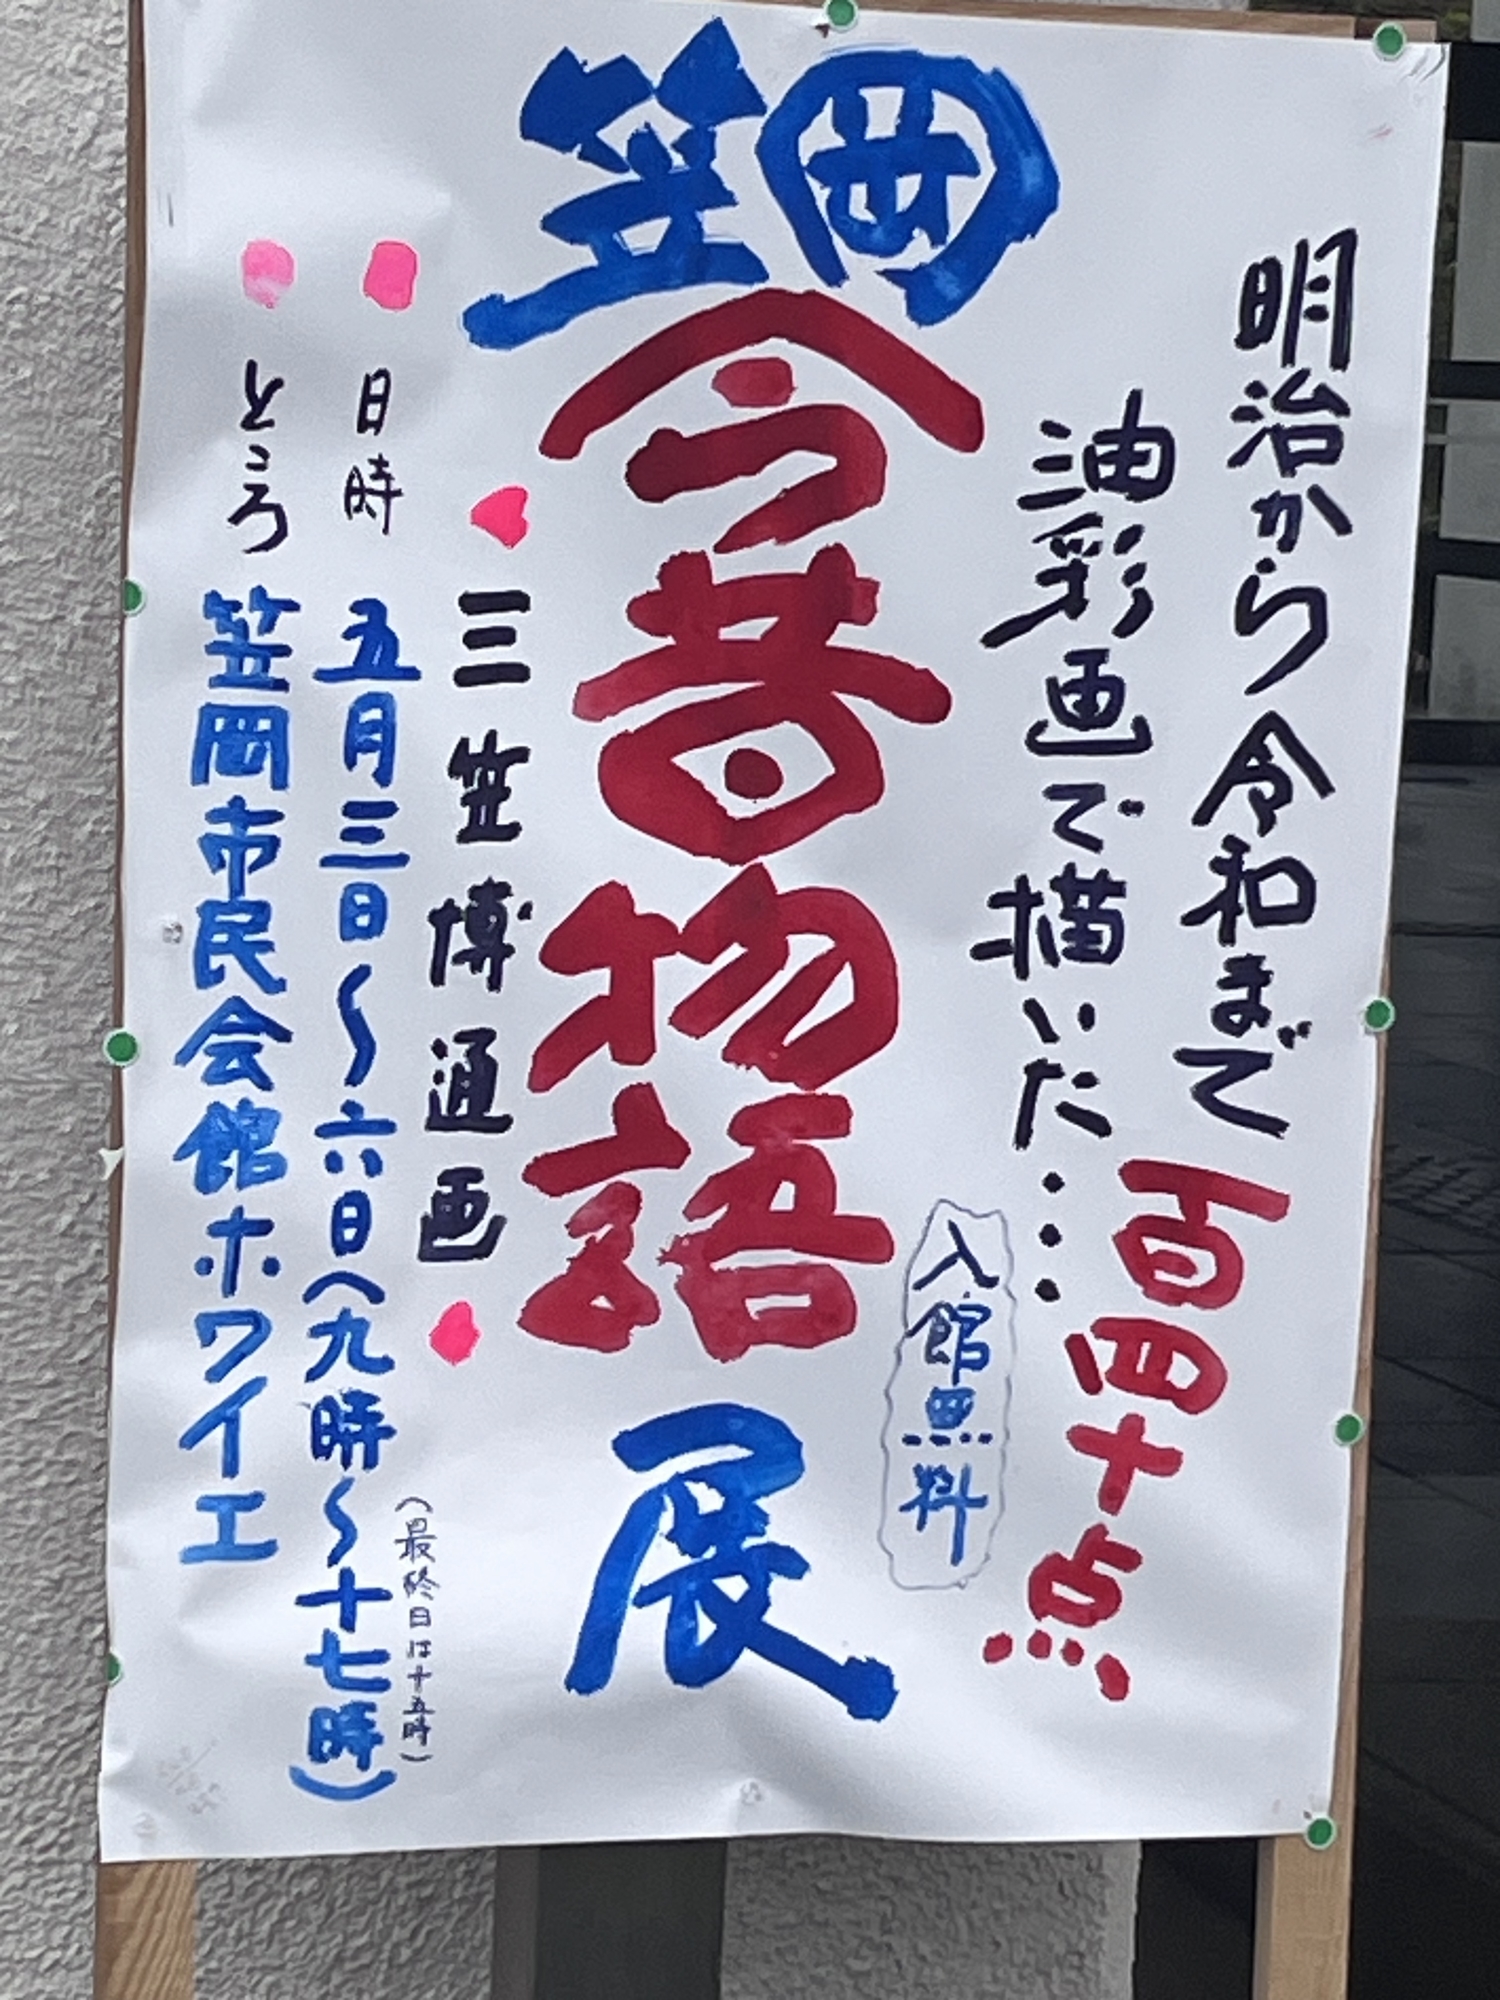 明治から令和まで
百四十点
油彩画で描いた・・・
入館無料
笠岡
今昔物語
展
三笠博通画
日時 五月三日〜六日(九時〜十七時)
(最終日は十五時)
ところ 笠岡市民会館ホワイエ